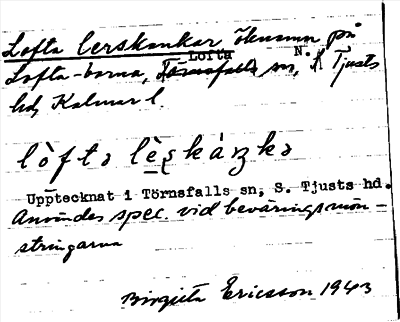 Lofta lerskankar öknamn på
Lofta-borna, Lofta sn, N. Tjusts
hd, Kalmar l.
lòftə lèʂkáŋkə
Upptecknat i Törnsfalls sn, S. Tjusts hd.
Användes spec. vid beväringsmön-
stringarna
Birgitta Ericsson 1943